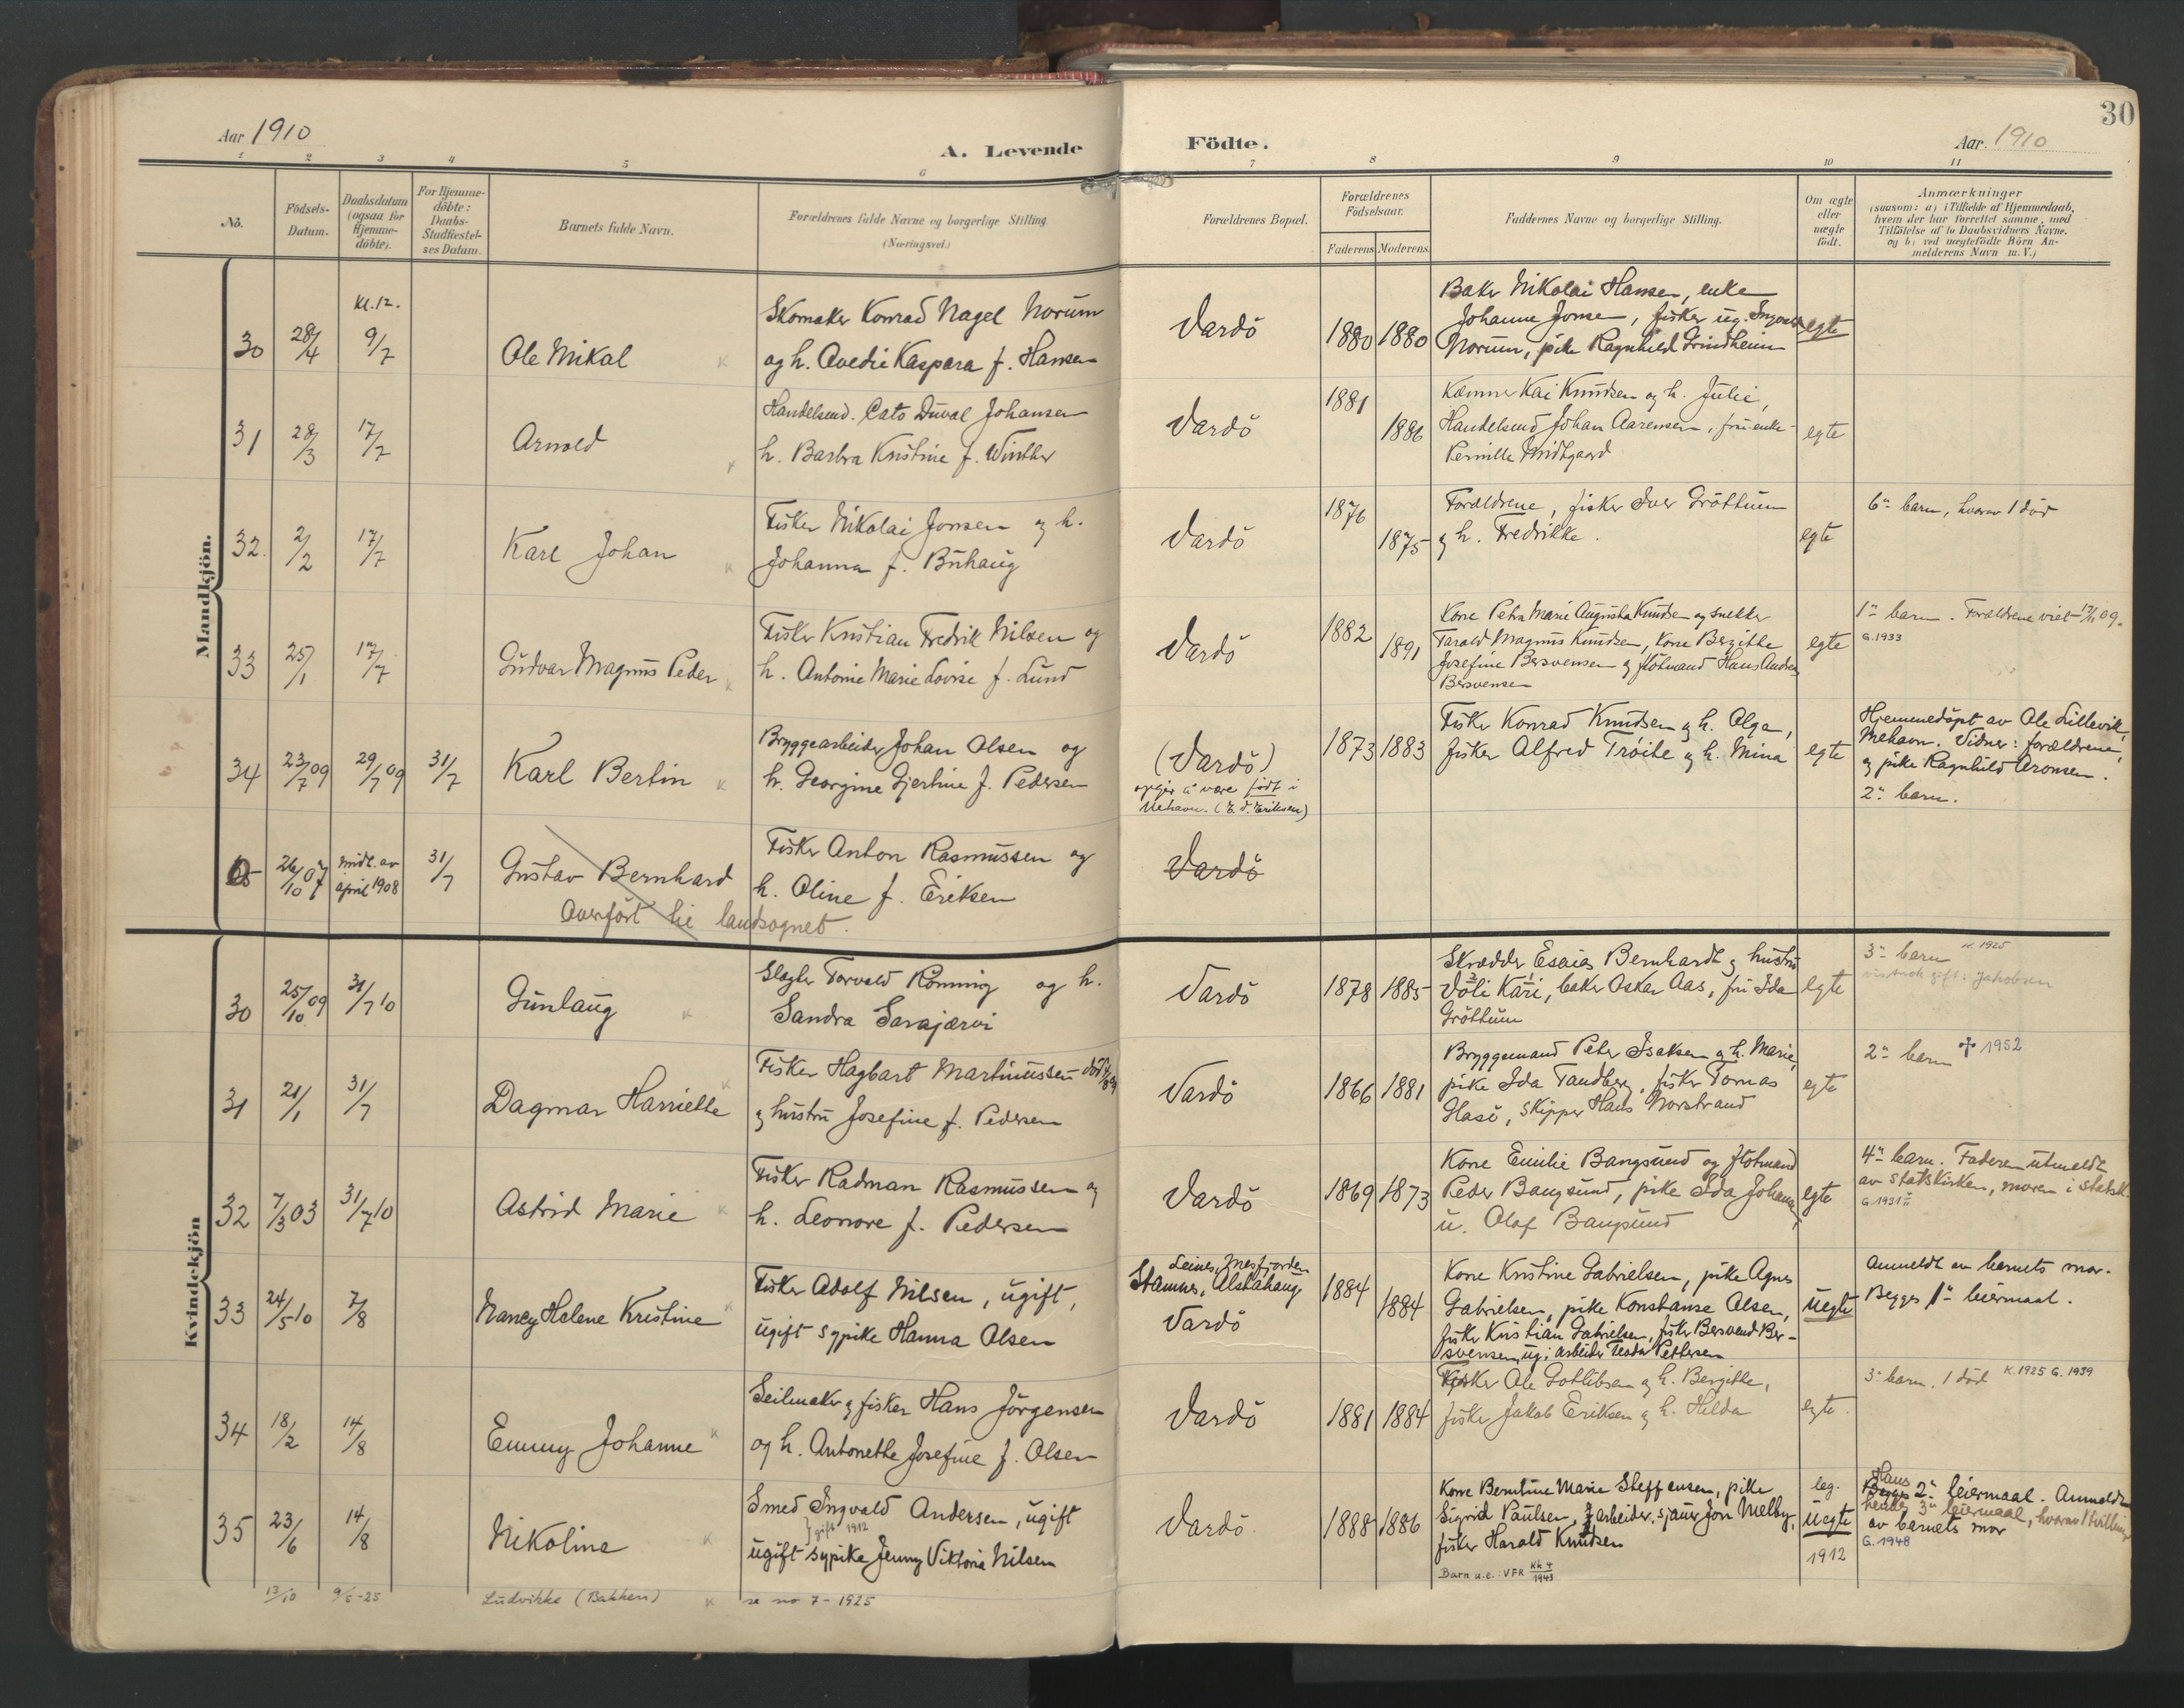 Aar 1910
A. Levende Födte.
Aar. 1910
30
1 2 3 4 5 6 7 8 9 10 11
No.
Födsels-
Datum.
Daabsdatum
(ogsaa for
Hjemme-
döbte).
For Hjemme-
döbte:
Daabs-
Stadfæstel-
ses Datum.
Barnets fulde Navn.
Forældrenes fulde Navne og borgerlige Stilling
(Næringsvei.)
Forældrenes Bopæl.
Forældrenes
Födselsaar.
Faderens Moderens
Faddernes Navne og borgerlige Stilling.
Om ægte
eller
uægte
födt.
Anmærkninger
(saasom: a) i Tilfælde af Hjemmedaab,
hvem der har forrettet samme, med
Tilföielse af to Daabsvidners Navne.
og b) ved uægtefödte Börn An-
melderens Navn m. V.)
Mandkjön.
30 28/4 Kl. 12. 9/7
Ole Mikal
Skomaker Konrad Nagel Norum
og h. Ovedie Kaspara f. Hansen
Vardö
1880 1880
Baker Nikolai Hansen, enke
Johanne Jonse, fisker ug. Ingvald
Norum, pike Ragnhild Grindheim
egte
31 28/3 17/7
Arnold
Handelsmd. Cato Duval Johansen
h. Barbra Kristine f. Winther
Vardö
1881 1886
Kæmner Kai Knudsen og h. Julie,
Handelsmd Johan Aarensen, fru enke
Pernille Midtgaard
egte
32. 2/2 17/7
Karl Johan
Fisker Nikolai Jonsen og h.
Johanna f. Buhaug
Vardö
1876 1875
Forældrene, fisker Iver Gröttum
og h. Fredrikke.
egte
6" barn, hvorav 1 död
33 25/1 17/7
Gudvar Magnus Peder
Fisker Kristian Fredrik Nilsen og
h. Antonie Marie Lovise f. Lund
Vardö
1882 1891
Kone Petra Marie Augusta Knudsen og snekker
Tarald Magnus Knudsen, Kone Bergitte
Josefine Bersvensen og flötmand Hans Andreas
Bersvensen
egte
1" barn. Forældrene viet 17/11 09.
G. 1933
34 23/7 09 29/7 09 31/7
Karl Bertin
Bryggearbeider Johan Olsen og
h. Georgine Gjertine f. Pedersen
(Vardö)
opgir å være födt i
Mehavn. (E. d. Eriksen)
1873 1883
Fisker Konrad Knudsen og h. Olga,
fisker Alfred Tröite og h. Mina
egte
Hjemmedöpt av Ole Lillevik,
Mehavn. Vidner: forældrene
og pike Ragnhild Aronsen.
2" barn.
26/10 07 midt. av
april 1908 31/7
Gustav Bernhard
Fisker Anton Rasmussen og
h. Oline f. Eriksen
Overfört til landsognet.
Vardö
Kvindekjön
30 25/10 09 31/7 10
Gunlaug
Slagter Torvald Rönning og h.
Sandra Sarajærvi
Vardö
1878 1885
Skrædder Esaias Bernhardt og hustru
Voli Kari, baker Oskar Aas, fru Ida
Gröttum
egte
3" barn K. 1925
gift: Jakobsen
31 21/1 31/7
Dagmar Harriette
Fisker Hagbart Martinussen död
og hustru Josefine f. Pedersen
Vardö
1866 1881
Bryggemand Peter Isaksen og h. Marie,
pike Ida Tandberg, fisker Tomas
Glasö, Skipper Hans Norstrand
egte
2" barn † 1952
32 7/3 03 31/7 10
Astrid Marie
Fisker Radman Rasmussen og
h. Leonore f. Pedersen
Vardö
1869 1873
Kone Emilie Bangsund og flötmand
Peder Bangsund, pike Ida Johans
u. Olaf Bangsund
egte
4" barn. Faderen utmeldt
av statskirken, moren i statsk.
G. 1931 II
33 24/5 10 7/8
Nancy Helene Kristine
Fisker Adolf Nilsen, ugift,
ugift sypike Hanna Olsen
Leines, Mesfjorden
Stamnes, Alstahaug
Vardö
1884 1884
Kone Kristine Gabrielsen, pike Agnes
Gabrielsen, pike Konstanse Olsen,
fisker Kristian Gabrielsen, fisker Bersvend Ber-
svensen, ug: arbeider Teodor Pettersen
uegte
Anmeldt av barnets mor.
Begges 1" leiermaal.
34 18/2 14/8
Emmy Johanne
Seilmaker og fisker Hans Jörgensen
og h. Antonette Josefine f. Olsen
Vardö
1881 1884
Fisker Ole Gottlibsen og h. Bergitte,
fisker Jakob Eriksen og h. Helda
egte.
3" barn. 1 död K. 1925 G. 1939
35 23/6 14/8
Nikoline
Smed Ingvald Andersen, ugift
} gift 1912
ugift sypike Jenny Viktoria Nilsen
Vardö.
1888 1886
Kone Berntine Marie Steffensen, pike
Sigrid Paulsen, arbeider, sjauer Jon Melby,
fisker Harald Knudsen
Barn u.e.: VFR Kk 4/1943
leg.
uegte
1912
Hans
Begges 2" leiermaal. Anmeldt
hendes 3" leiermaal, hvorav 1 tvilling
av barnets mor
G. 1948
13/10 9/5-25 Ludvikke (Bakken) se no 7 - 1925